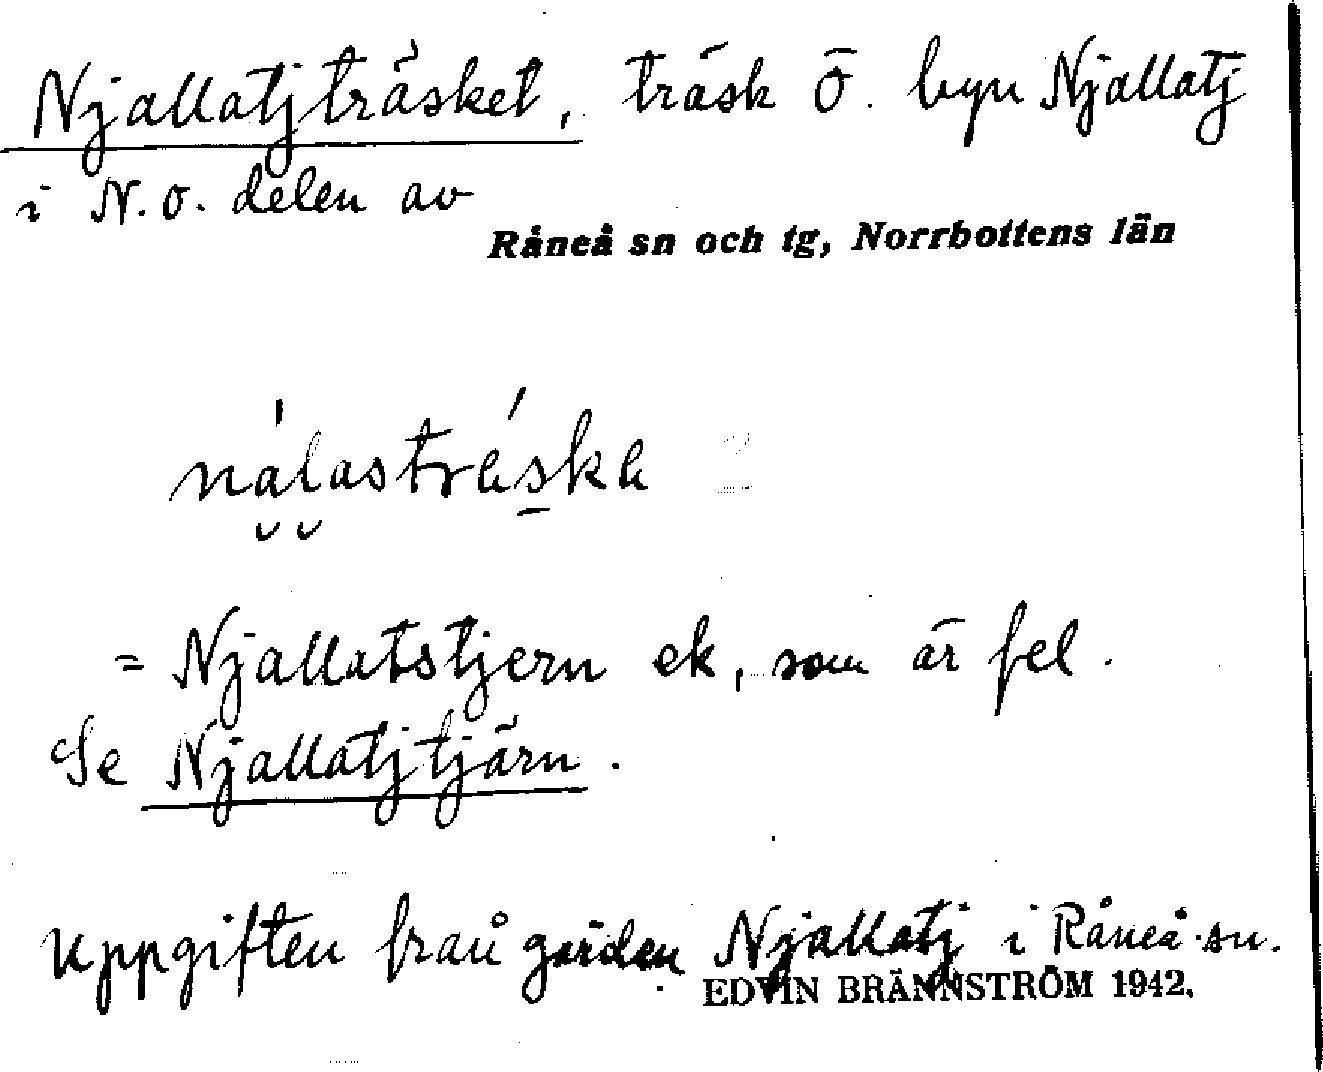 Njallatjträsket, träsk Ö. byn Njallatj
i N.O. delen av
Råneå sn och tg, Norrbottens län
nalasträska
= Njallatstjern ek, som är fel.
Se Njallatjtjärn.
Uppgiften från gården Njallatj i Råneå sn.
EDVIN BRÄNNSTRÖM 1942.